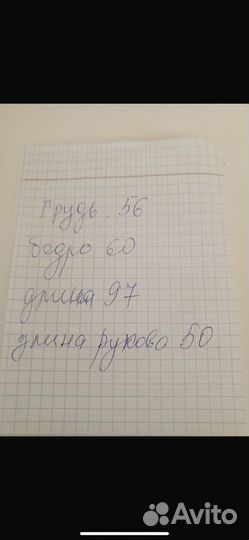 Грудь. 56
бедро 60
длина 97
длина руково 50.
Avito